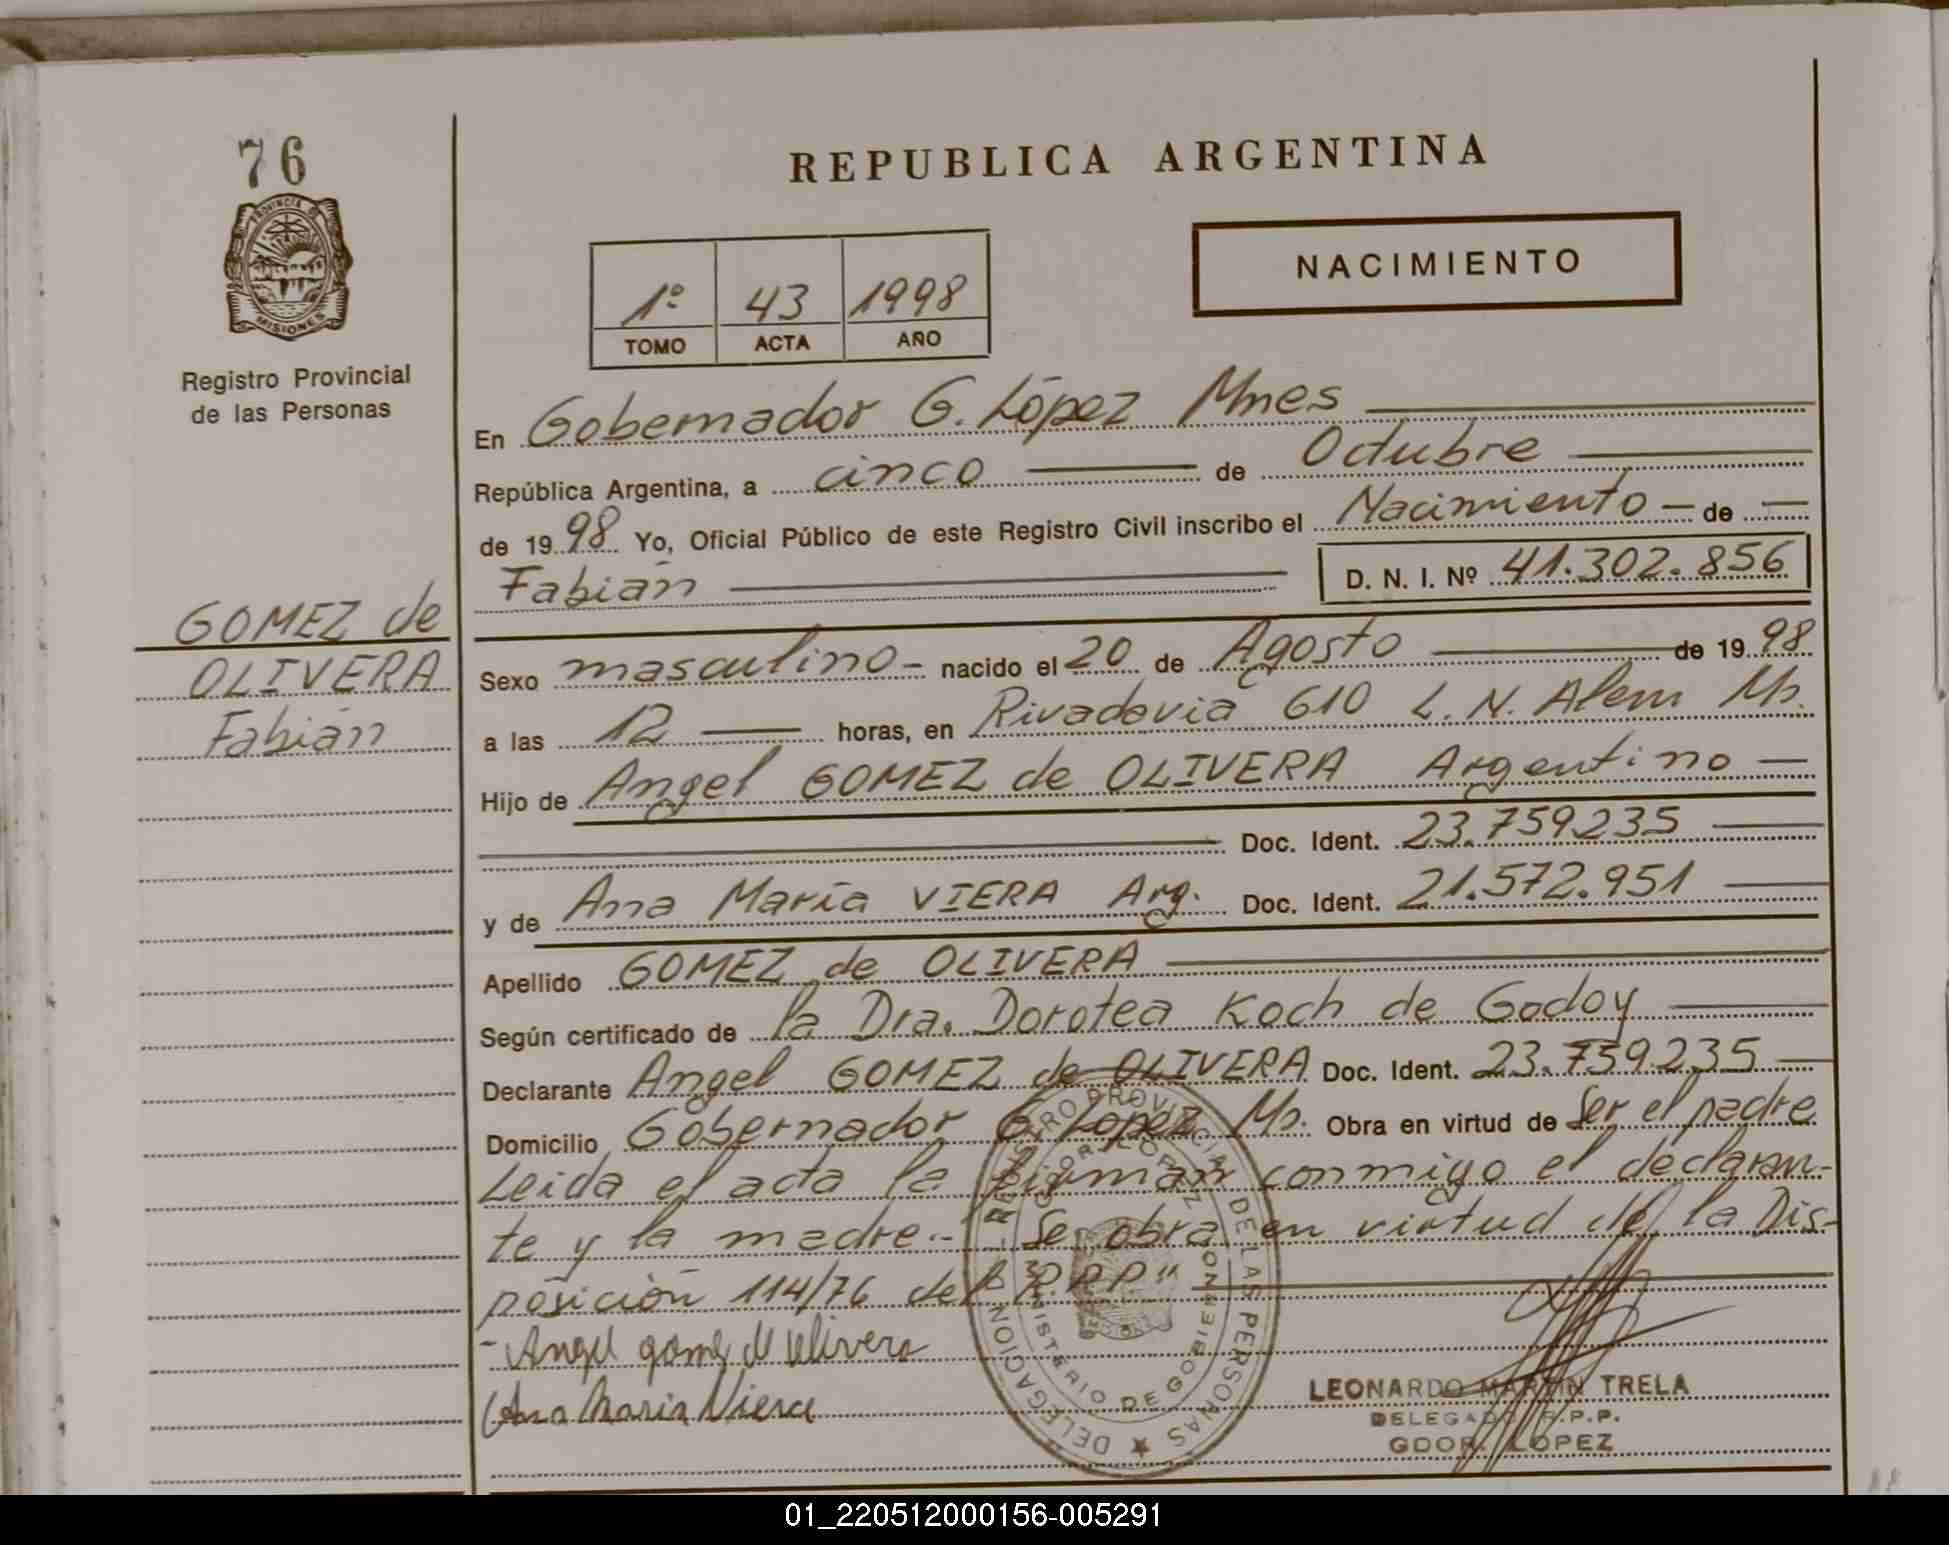 76
PROVINCIA DE
MISIONES
Registro Provincial
de las Personas
GOMEZ de
OLIVERA
Fabián
REPUBLICA ARGENTINA
NACIMIENTO
1º 43 1998
TOMO ACTA AÑO
En Gobernador G. López Mnes
República Argentina, a cinco de Octubre
de 1998 Yo, Oficial Público de este Registro Civil inscribo el Nacimiento de
Fabián D. N. I. Nº 41.302.856
Sexo masculino nacido el 20 de Agosto de 1998
a las 12 horas, en Rivadavia 610 L. N. Alem Ms.
Hijo de Angel GOMEZ de OLIVERA Argentino
Doc. Ident. 23.759.235
y de Ana María VIERA Arg. Doc. Ident. 21.572.951
Apellido GOMEZ de OLIVERA
Según certificado de la Dra. Dorotea Koch de Godoy
Declarante Angel GOMEZ de OLIVERA Doc. Ident. 23.759.235
Domicilio Gobernador G. Lopez Ms. Obra en virtud de Ser el padre
Leida el acta la firman conmigo el declaran-
te y la madre.- Se obra en virtud de la Dis-
posición 114/76 del R.P.P."
Angel gomez d olivera
Ana Maria Viera
REGISTRO PROVINCIAL DE LAS PERSONAS
DELEGACION
MINISTERIO DE GOBIERNO
LEONARDO MARTIN TRELA
DELEGADO R.P.P.
GDOR. LOPEZ
01_220512000156-005291